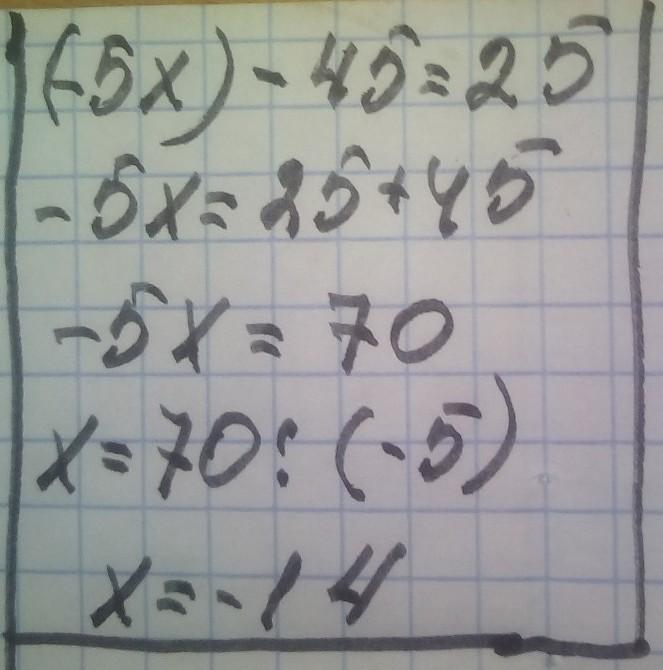 (-5x) - 45 = 25
-5x = 25 + 45
-5x = 70
x = 70 : (-5)
x = -14